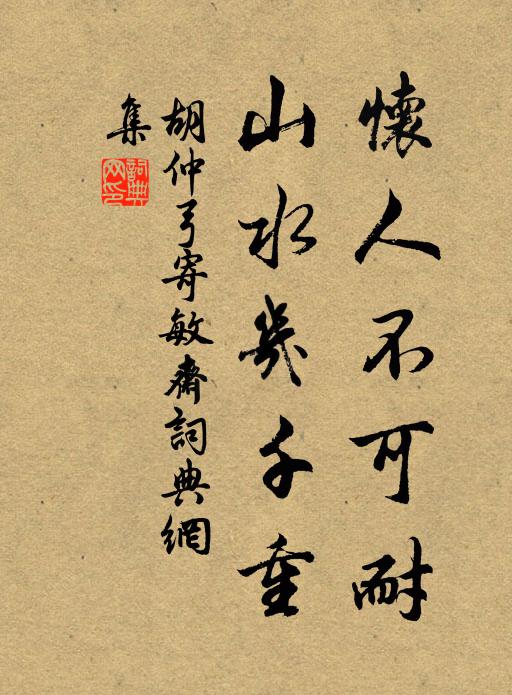 懷人不可耐
山水幾千重
胡仲弓寄敏齋詞典網
集
詞典
网印